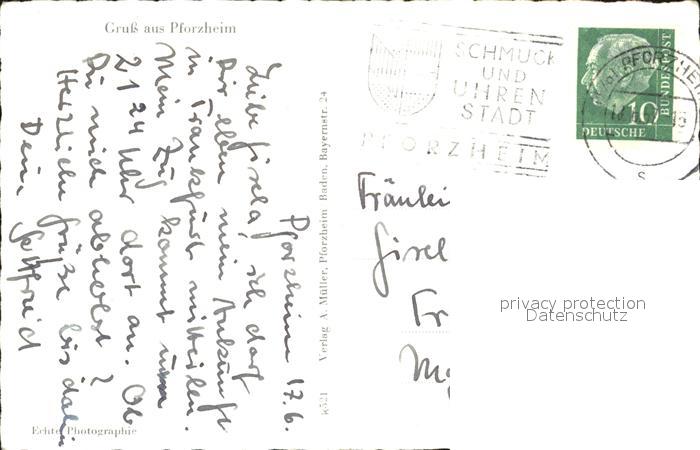 Gruß aus Pforzheim
Pforzheim 17.6.
Liebe Gisela, ich darf
Dir eben mein Ankunft
in Frankfurt mitteilen.
Mein Zug kommt um
21 24 Uhr dort an. Ob
Du mich abholst?
Herzliche Grüße bis dahin
Dein Gottfried
Echte Photographie
Verlag A. Müller, Pforzheim Baden, Bayernstr. 24
SCHMUCK
UND
UHREN
STADT
PFORZHEIM
10
DEUTSCHE
BUNDESPOST
Fräulei
Gisel
Fr
privacy protection
Datenschutz